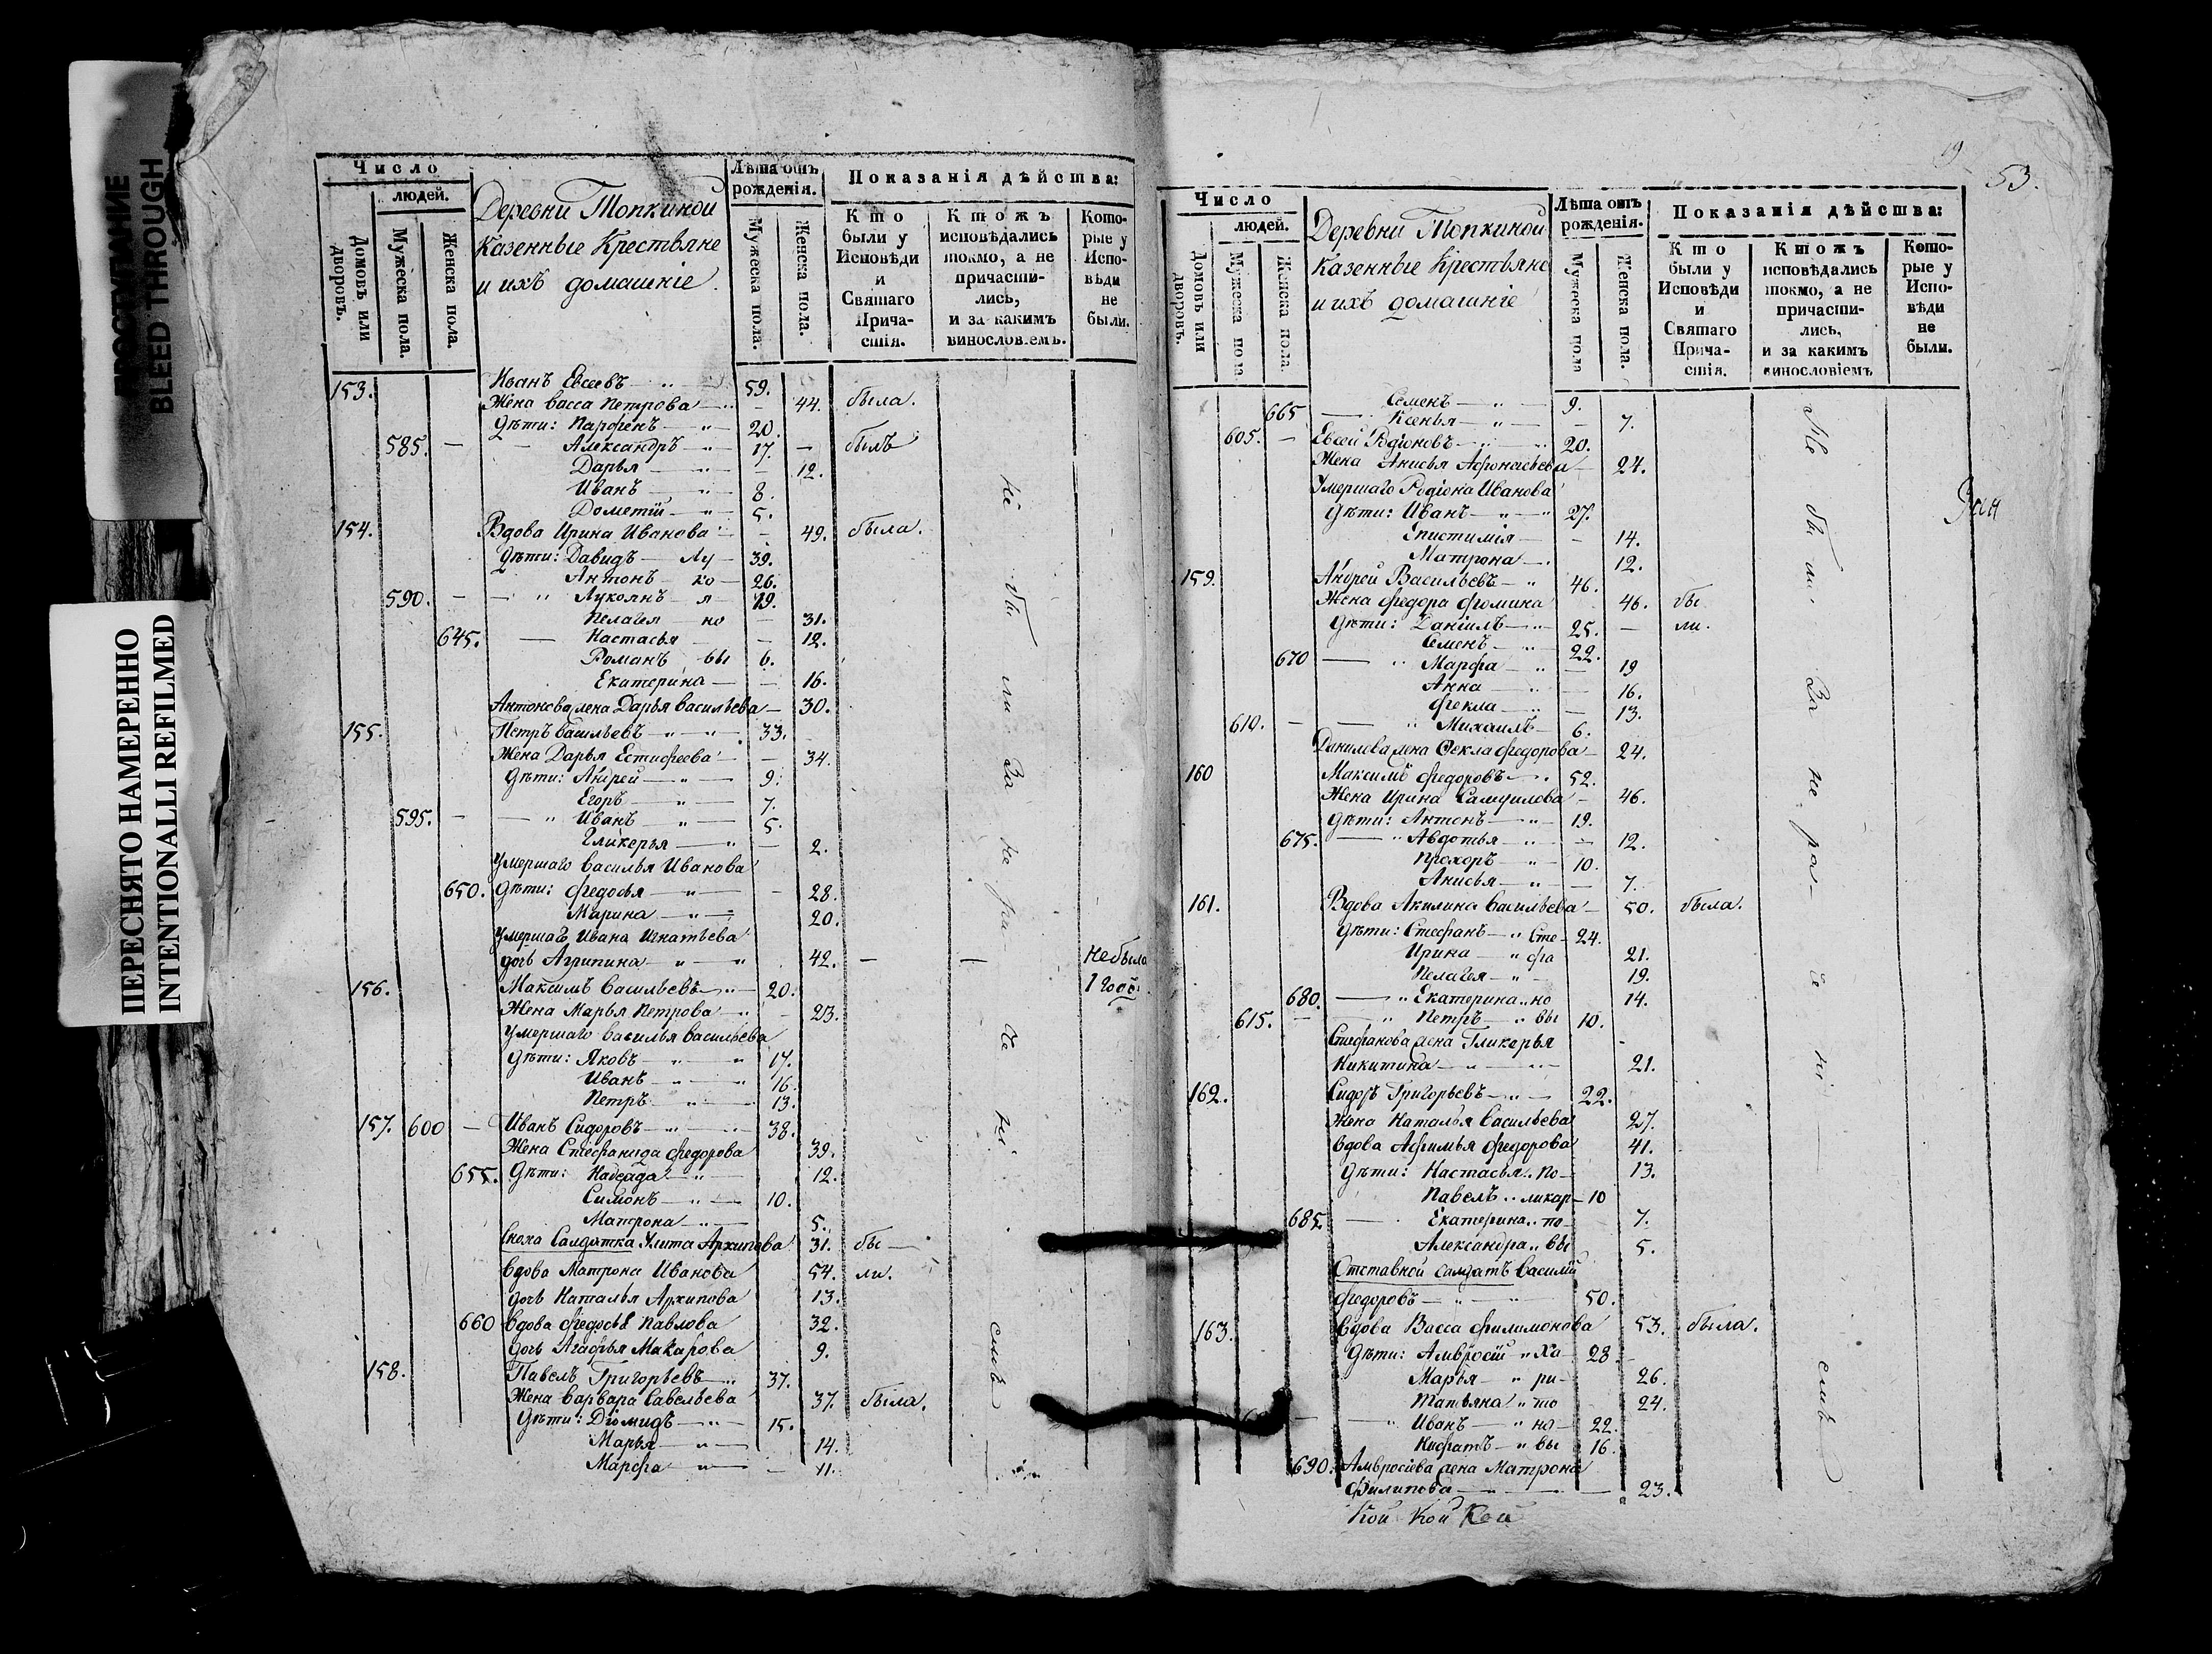 ПРОСТУПАНИЕ
BLEED THROUGH
ПЕРЕСНЯТО НАМЕРЕННО
INTENTIONALLI REFILMED
Число
людей.
Домовъ или дворовъ.
Мужеска пола.
Женска пола.
Деревни Топкиной
Казенные Крестьяне
и ихъ домашніе
Лѣта отъ рожденія.
Мужеска пола.
Женска пола.
Показанія дѣйства:
Кто были у Исповѣди и Святаго Причастія.
Ктожъ исповѣдались токмо, а не причастились, и за какимъ винословіемъ.
Которые у Исповѣди не были.
153. Иванъ Евсеевъ 59.
Жена Васса Петрова 44. была.
Дѣти: Парфенъ 20.
585. Александръ 17. былъ
Дарья 12.
Иванъ 8.
Дометій 5.
154. Вдова Ирина Иванова 49. была.
Дѣти: Давидъ Лу 39.
Антонъ ко 26.
590. Лукоянъ я 19.
Пелагея но 31.
645. Настасья 12.
Романъ вы 6.
Екатерина 16.
Антонова жена Дарья Васильева 30.
155. Петръ Васильевъ 33.
Жена Дарья Естифеева 34.
Дѣти: Андрей 9.
Егоръ 7.
595. Иванъ 5.
Гликерья 2.
Умершаго Василья Иванова
650. Дѣти: Федосья 28.
Марина 20.
Умершаго Ивана Игнатьева
дочь Агрипина 42. не была
1 годъ
156. Максимъ Васильевъ 20.
Жена Марья Петрова 23.
Умершаго Василья Васильева
Дѣти: Яковъ 17.
Иванъ 16.
Петръ 13.
157. 600 Иванъ Сидоровъ 38.
Жена Стефанида Федорова 39.
655. Дѣти: Надежда 12.
Симонъ 10.
Матрона 5.
Сноха Салдатка Улита Архипова 31. бы
Вдова Матрона Иванова 54. ли.
дочь Наталья Архипова 13.
660 Вдова Федосья Павлова 32.
дочь Агафья Макарова 9.
158. Павелъ Григорьевъ 37.
Жена Варвара Савельева 37. была.
Дѣти: Діомидъ 15.
Марья 14.
Марфа 11.
не бы ли За не ра че ні емъ
19
53.
Число
людей.
Домовъ или дворовъ.
Мужеска пола
Женска пола.
Деревни Топкиной
Казенные Крестьяне
и ихъ домашніе
Лѣта отъ рожденія.
Мужеска пола
Женска пола.
Показанія дѣйства:
Кто были у Исповѣди и Святаго Причастія.
Ктожъ исповѣдались токмо, а не причастились, и за какимъ винословіемъ
Которые у Исповѣди не были.
Семенъ 9.
665 Ксенья 7.
605. Евсей Родіоновъ 20.
Жена Анисья Афонасьева 24.
Умершаго Родіона Иванова
Дѣти: Иванъ 27.
Епистимія 14.
Матрона 12.
159. Андрей Васильевъ 46.
Жена Федора Фомина 46. бы
Дѣти: Даніилъ 25. ли.
Семенъ 22.
670 Марфа 19
Анна 16.
Фекла 13.
610. Михаилъ 6.
Данилова жена Фекла Федорова 24.
160 Максимъ Федоровъ 52.
Жена Ирина Самуилова 46.
Дѣти: Антонъ 19.
675. Авдотья 12.
Прохоръ 10.
Анисья 7.
161. Вдова Акилина Васильева 50. была.
Дѣти: Стефанъ Сте 24.
Ирина фа 21.
Пелагея 19.
680. Екатерина но 14.
615. Петръ вы 10.
Стефанова жена Гликерья
Никитина 21.
162. Сидоръ Григорьевъ 22.
Жена Наталья Васильева 27.
Вдова Афимья Федорова 41.
Дѣти: Настасья По 13.
Павелъ ликар 10
685. Екатерина по 7.
Александра вы 5.
Отставной салдатъ Василій
Федоровъ 50.
163. Вдова Васса Филимонова 53. была.
Дѣти: Амвросій Ха 28
Марья ри 26.
Татьяна то 24.
Иванъ но 22.
Нифатъ вы 16.
690. Амвросіева жена Матрона
Филипова 23.
Кой Кой Кой
Не бы ли За не ра че ні емъ